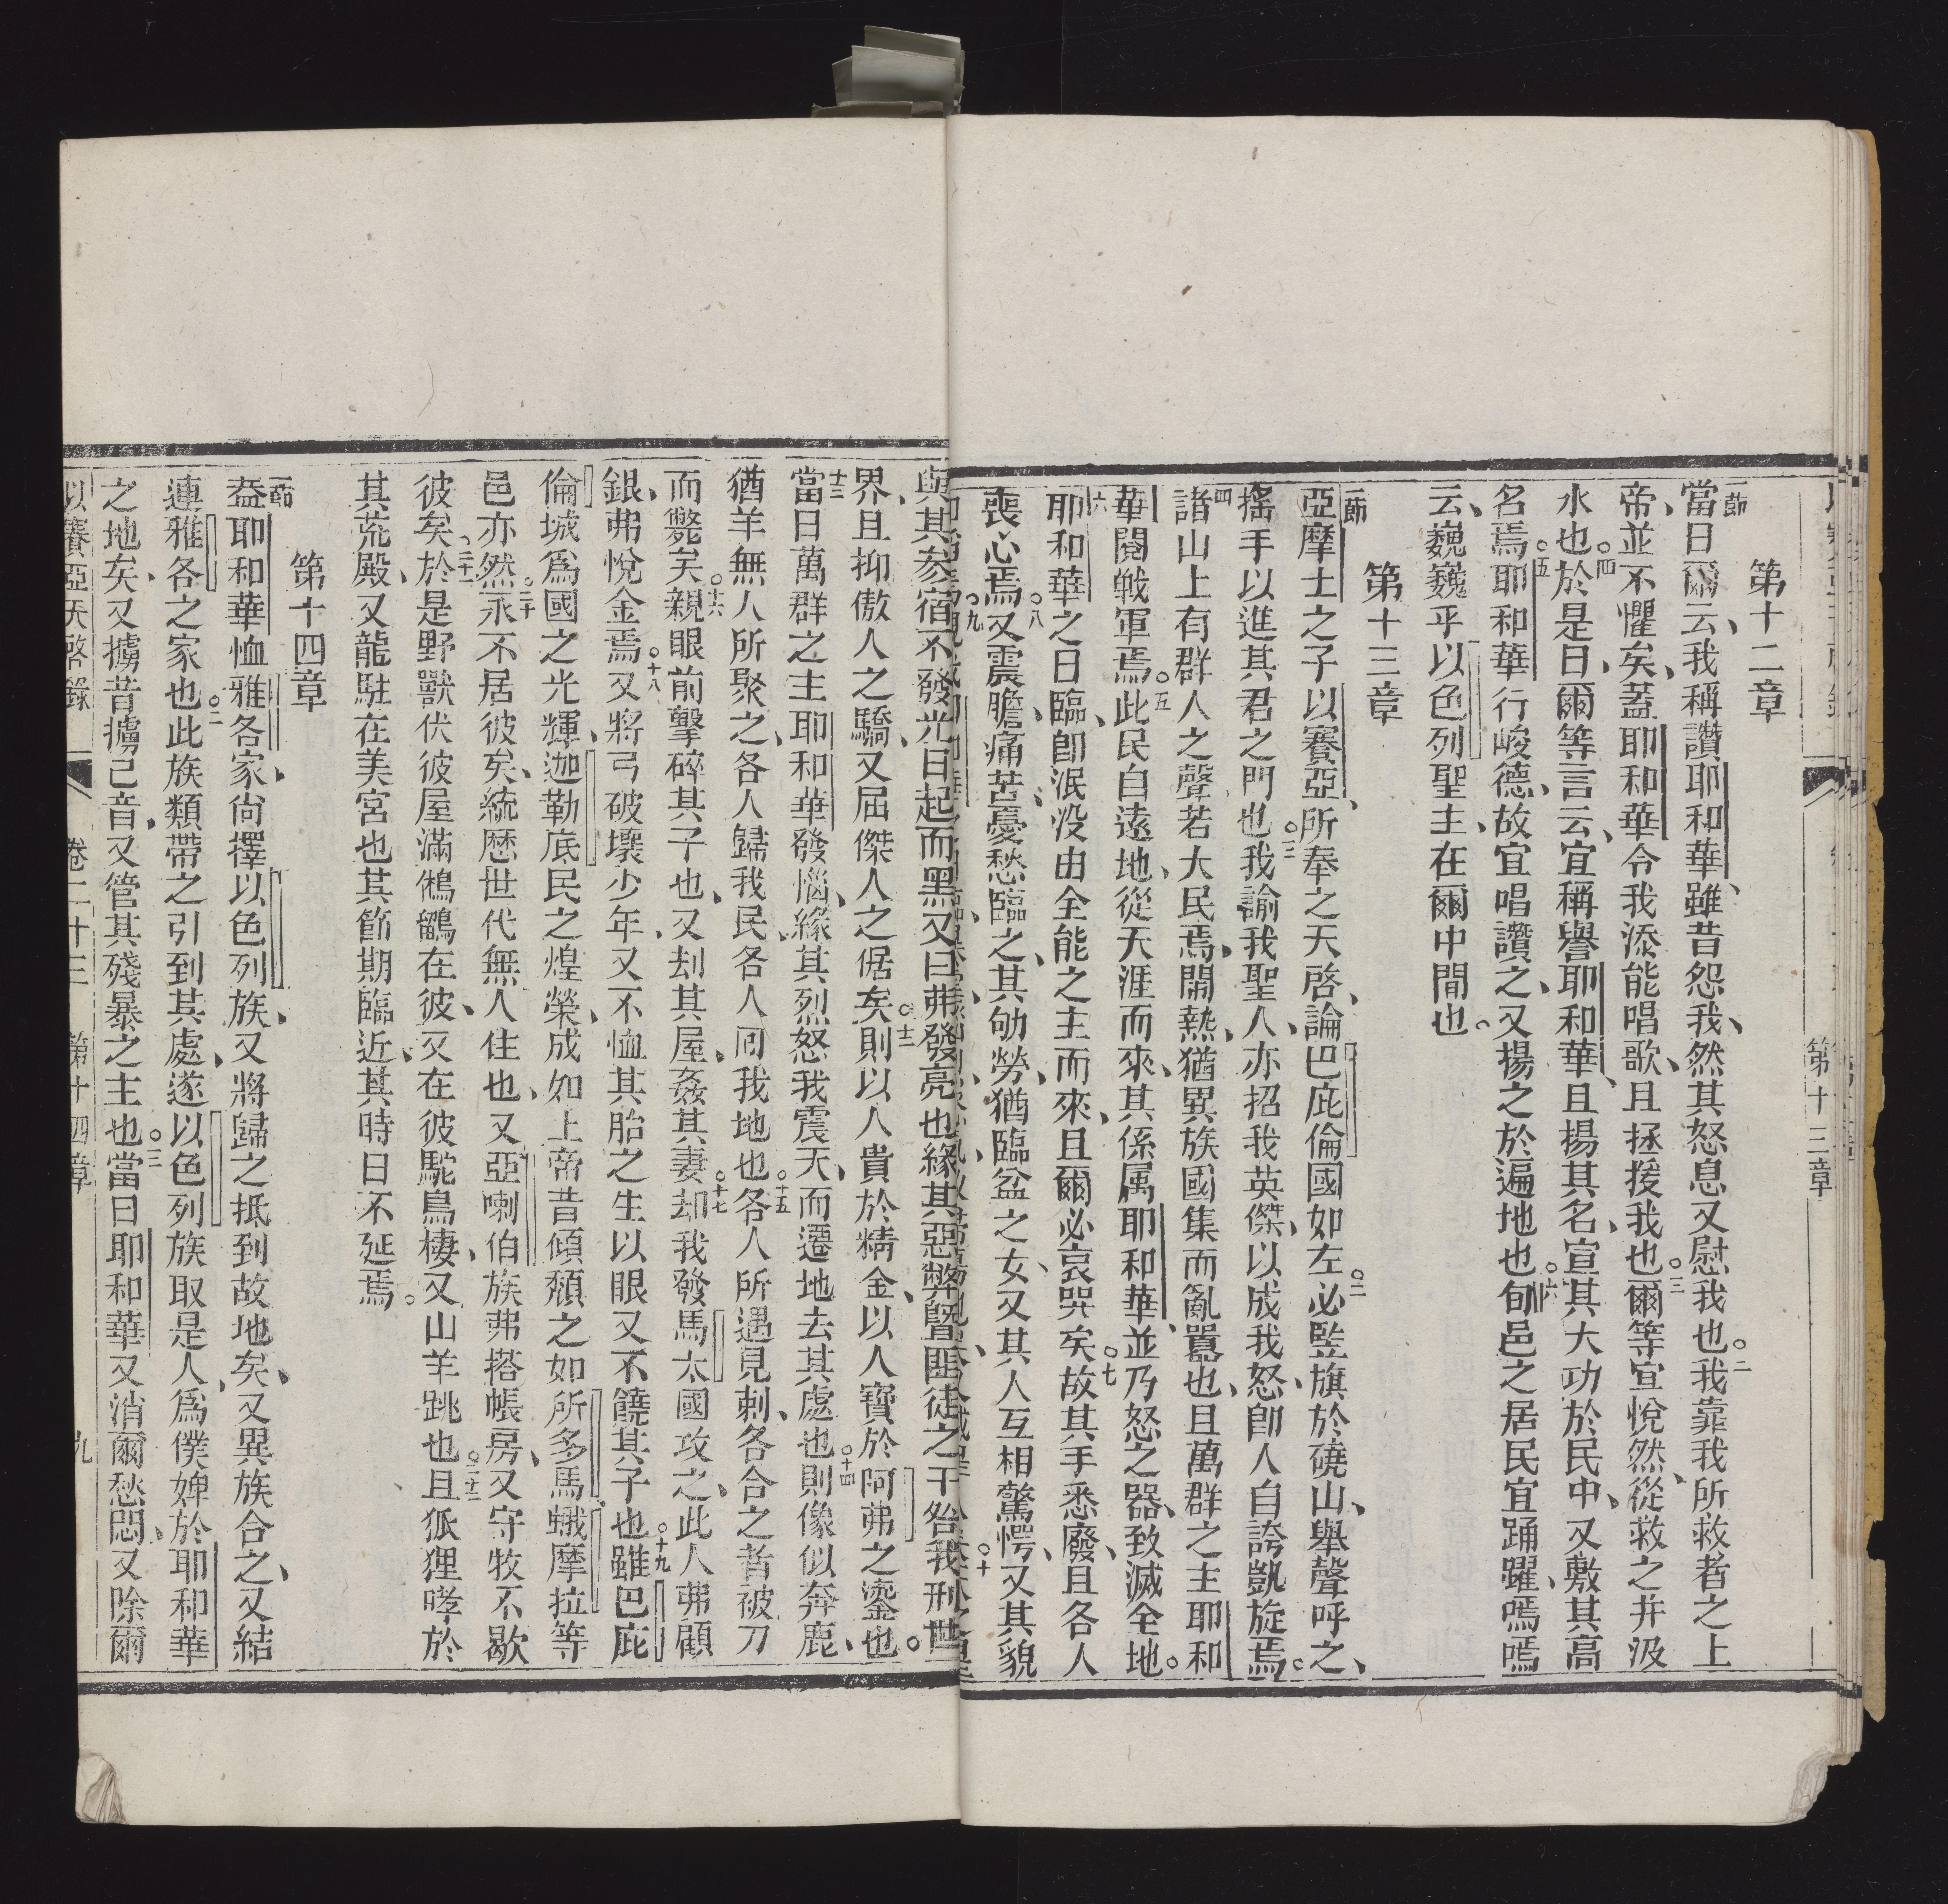 第十三章
第十二章
一節當日爾云、我稱讚耶和華、雖昔怨我、然其怒息又慰我也。二我靠我所救者之上
帝、並不懼矣、蓋耶和華令我添能唱歌、且拯援我也。三爾等宣悅然、從救之井汲
水也。四於是日、爾等言云、宜稱譽耶和華、且揚其名、宣其大功於民中、又敷其高
名焉。五耶和華行峻德、故宜唱讚之、又揚之於遍地也。六郇邑之居民宜踊躍、嗎嗎
云、巍巍乎以色列聖主、在爾中間也。
第十三章
一節亞摩士之子以賽亞、所奉之天啓、論巴庇倫國如左。二必豎旗於磽山、舉聲呼之、
搖手以進其君之門也。三我諭我聖人、亦招我英傑、以成我怒、卽人自誇凱旋焉。
四諸山上有群人之聲、若大民焉、閙熱、猶異族國集而亂囂也、且萬群之主耶和
華閱戰軍焉。五此民自遠地、從天涯而來、其係属耶和華、並乃怒之器、致滅全地。
六耶和華之日臨、卽泯没由全能之主而來、且爾必哀哭矣。七故其手悉廢、且各人
喪心焉。八又震膽、痛苦、憂愁臨之、其劬勞、猶臨盆之女、又其人互相驚愕、又其貌
與其参宿不發光、日起而黑、又曰弗發亮也、緣其惡弊曁匪徒之干咎、我刑世
界、且抑傲人之驕、又屈傑人之倨矣。十二則以人貴於精金、以人寶於阿弗之鎏也。
十三當日萬群之主耶和華發惱、緣其烈怒、我震天、而遷地去其處也。十四則像似奔鹿、
猶羊無人所聚之、各人歸我民、各人囘我地也。十五各人所遇見刺、各合之者被刀
而斃矣。十六親眼前擊碎其子也、又刦其屋、姦其妻。十七却我發馬太國攻之、此人弗顧
銀、弗悅金焉。十八又將弓破壞少年、又不恤其胎之生、以眼又不饒其子也。十九雖巴庇
倫城爲國之光輝、迦勒底民之煌榮、成如上帝昔傾頽之如所多馬、蛾摩拉等
邑亦然。二十永不居彼矣、統歷世代無人住也、又亞喇伯族弗搭帳房、又守牧不歇
彼矣。二十一於是野獸伏彼、屋滿鵂鶹在彼、又在彼駝鳥棲、又山羊跳也。二十二且狐狸哮於
其荒殿、又龍駐在美宮也、其節期臨近、其時日不延焉。
第十四章
一節蓋耶和華恤雅各家、尚擇以色列族、又將歸之抵到故地矣、又異族合之、又結
連雅各之家也。二此族類帶之引到其處、遂以色列族取是人、爲僕婢於耶和華
之地矣、又擄昔擄己音、又管其殘暴之主也。三當日耶和華又消爾愁悶、又除爾
以賽亞天啓錄 卷二十三 第十四章 九